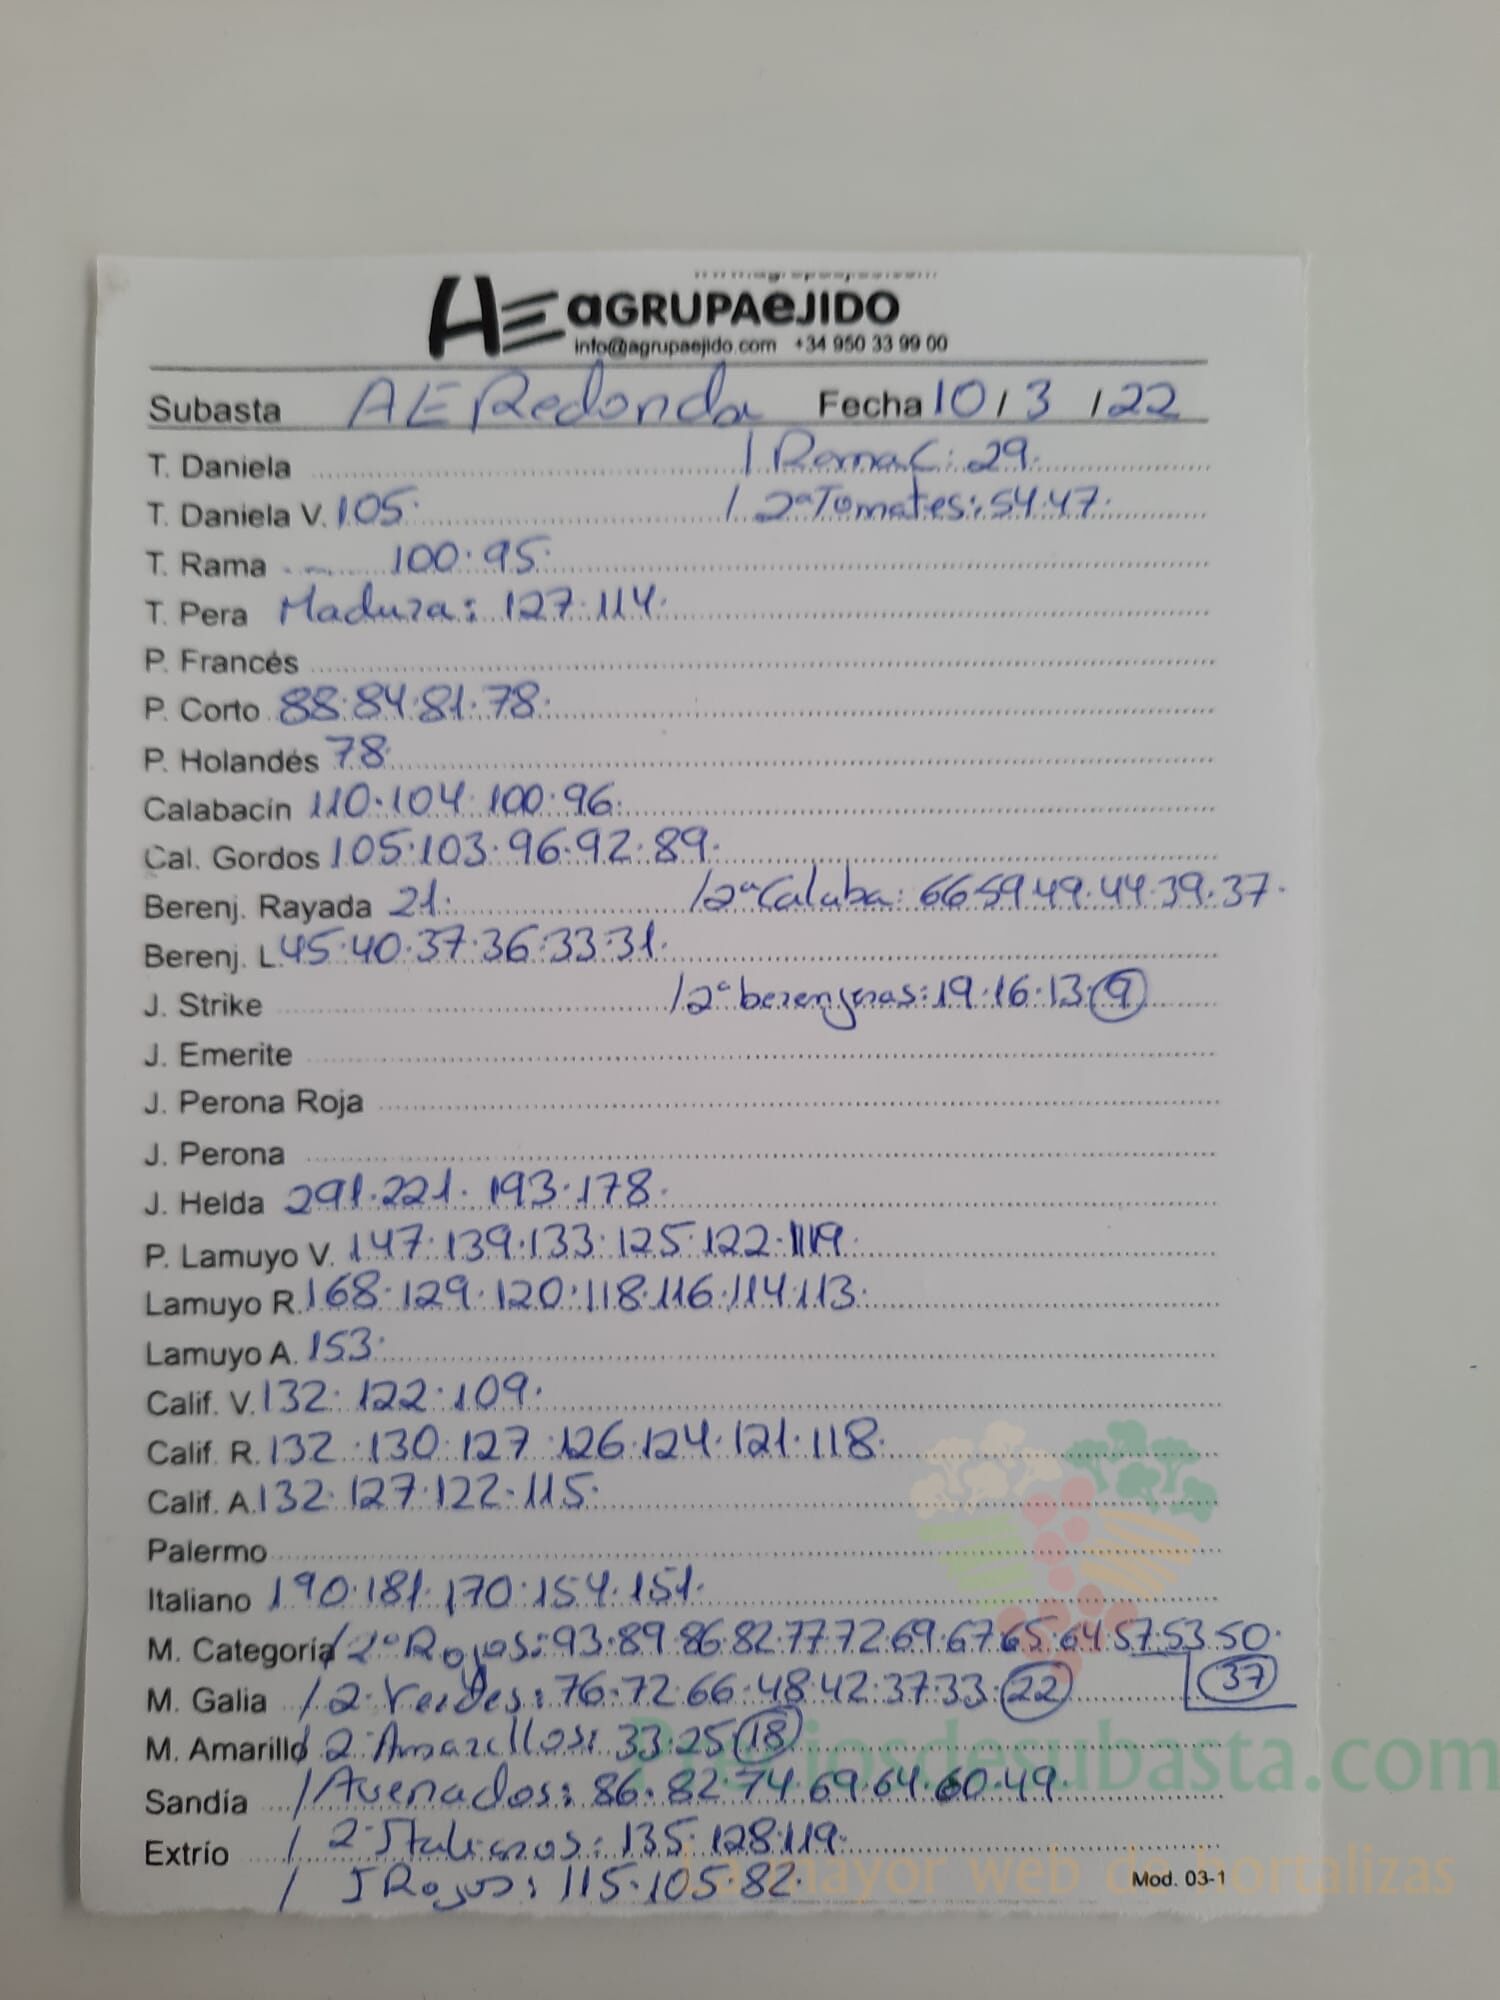 AE aGRUPAeJIDO
info@agrupaejido.com +34 950 33 99 00
Subasta AE Redonda Fecha 10 / 3 / 22
T. Daniela / Rama C: 29.
T. Daniela V. 105. / 2ª Tomates: 54.47.
T. Rama 100.95.
T. Pera Madura: 127.114.
P. Francés
P. Corto 88.84.81.78.
P. Holandés 78.
Calabacín 110.104.100.96.
Cal. Gordos 105.103.96.92.89.
Berenj. Rayada 21. / 2ª Calaba: 66.59.49.44.39.37.
Berenj. L. 45.40.37.36.33.31.
J. Strike / 2ª berenjenas: 19.16.13.9
J. Emerite
J. Perona Roja
J. Perona
J. Helda 291.221.193.178.
P. Lamuyo V. 147.139.133.125.122.119.
Lamuyo R. 168.129.120.118.116.114.113.
Lamuyo A. 153.
Calif. V. 132.122.109.
Calif. R. 132.130.127.126.124.121.118.
Calif. A. 132.127.122.115.
Palermo
Italiano 190.181.170.154.151.
M. Categoría / 2ª Rojos: 93.89.86.82.77.72.69.67.65.64.57.53.50.
M. Galia / 2ª Verdes: 76.72.66.48.42.37.33.22 37
M. Amarillo / 2ª Amarillos: 33.25.18
Preciosdesubasta.com
Sandía / Asenados: 86.82.74.69.64.60.49.
Extrío / 2ª Italianos: 135.128.119.
La mayor web de hortalizas
/ I Rojos: 115.105.82. Mod. 03-1